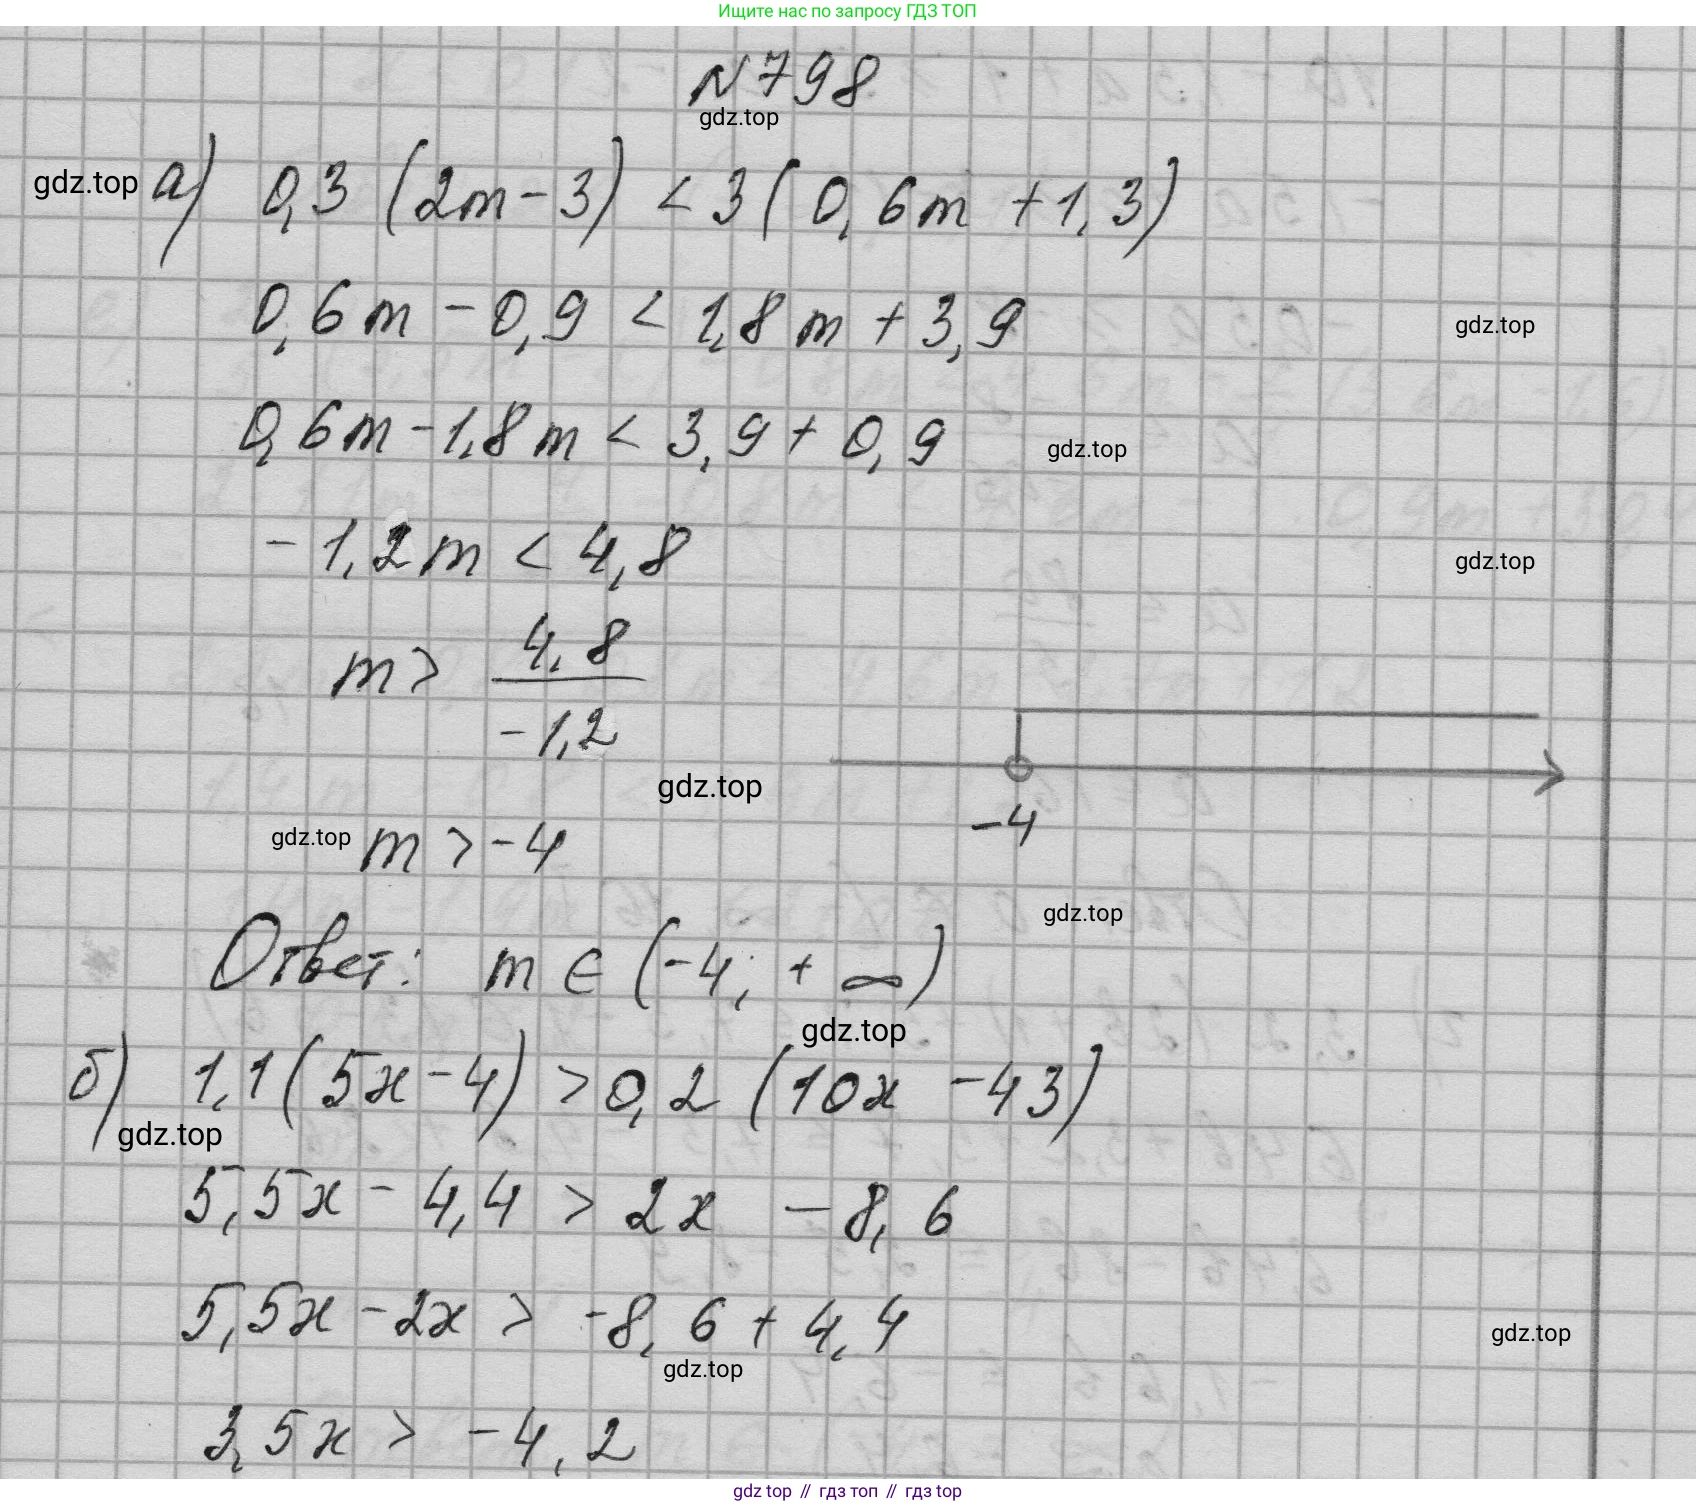 Ищите нас по запросу ГДЗ ТОП
N798
gdz.top
gdz.top а) 0,3 (2m - 3) < 3 ( 0,6m + 1,3)
0,6m - 0,9 < 1,8m + 3,9
gdz.top
0,6m - 1,8m < 3,9 + 0,9
gdz.top
- 1,2m < 4,8
gdz.top
m > 4,8 / -1,2
gdz.top
-4
gdz.top m > -4
gdz.top
Ответ: m ∈ (-4; + ∞)
gdz.top
б) 1,1 (5x - 4) > 0,2 (10x - 43)
gdz.top
5,5x - 4,4 > 2x - 8,6
5,5x - 2x > -8,6 + 4,4
gdz.top
gdz.top
3,5x > -4,2
gdz top // гдз топ // гдз top